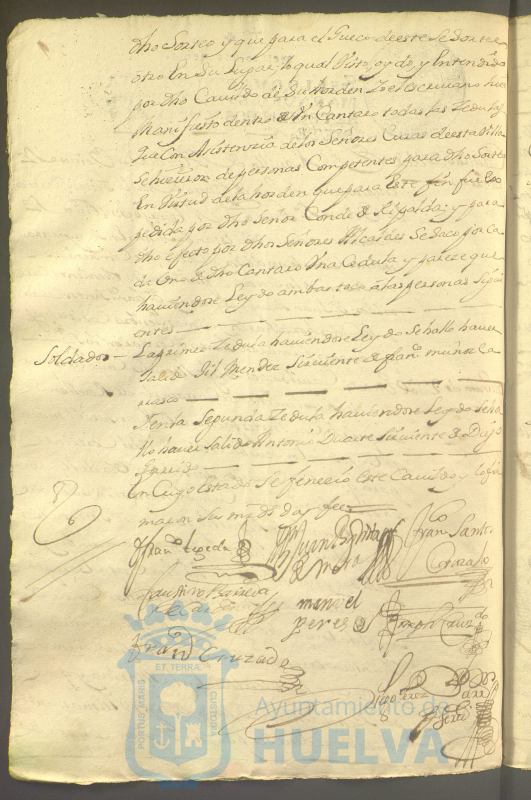 dho Sorteo y que para el Gueco de este se Sortee
otro En su lugar, lo qual Visto, oydo, y Entendido
por dho Cavildo de su horden Yo el escrivano hise
Manifiesto dentro de Un Cantaro todas las Zedulas
que Con Asistenzia de los Señores Curas de esta Villa
se hicieron de personas Competentes para dho Sorteo
En Virtud de la horden que para Este fin fue Ex
pedida por dho Señor Conde de Ripalda; y para
dho efecto por dhos Señores Alcaldes se Saco por ca
da Uno de dho Cantaro Una Cedula y pareze que
haviendose Leydo ambas toco a las personas Sigui
entes
Soldados - La primer Zedula haviendose Leydo se hallo haver
salido Gil Mendez Sirviente de franco muñoz Ca
rrasco
Yen la Segunda Zedula haviendose Leydo se ha
llo haver salido Antonio Duarte Sirviente de Diego
Garrido
En Cuyo estado Se fenecio este Cavildo y lo fir
maron sus mrds doy fee
Fran Santos
manuel
peres
Fran Cruzado
Diego Perez
PORTUS MARIS
ET TERRAE
CUSTODIA
Ayuntamiento de
HUELVA